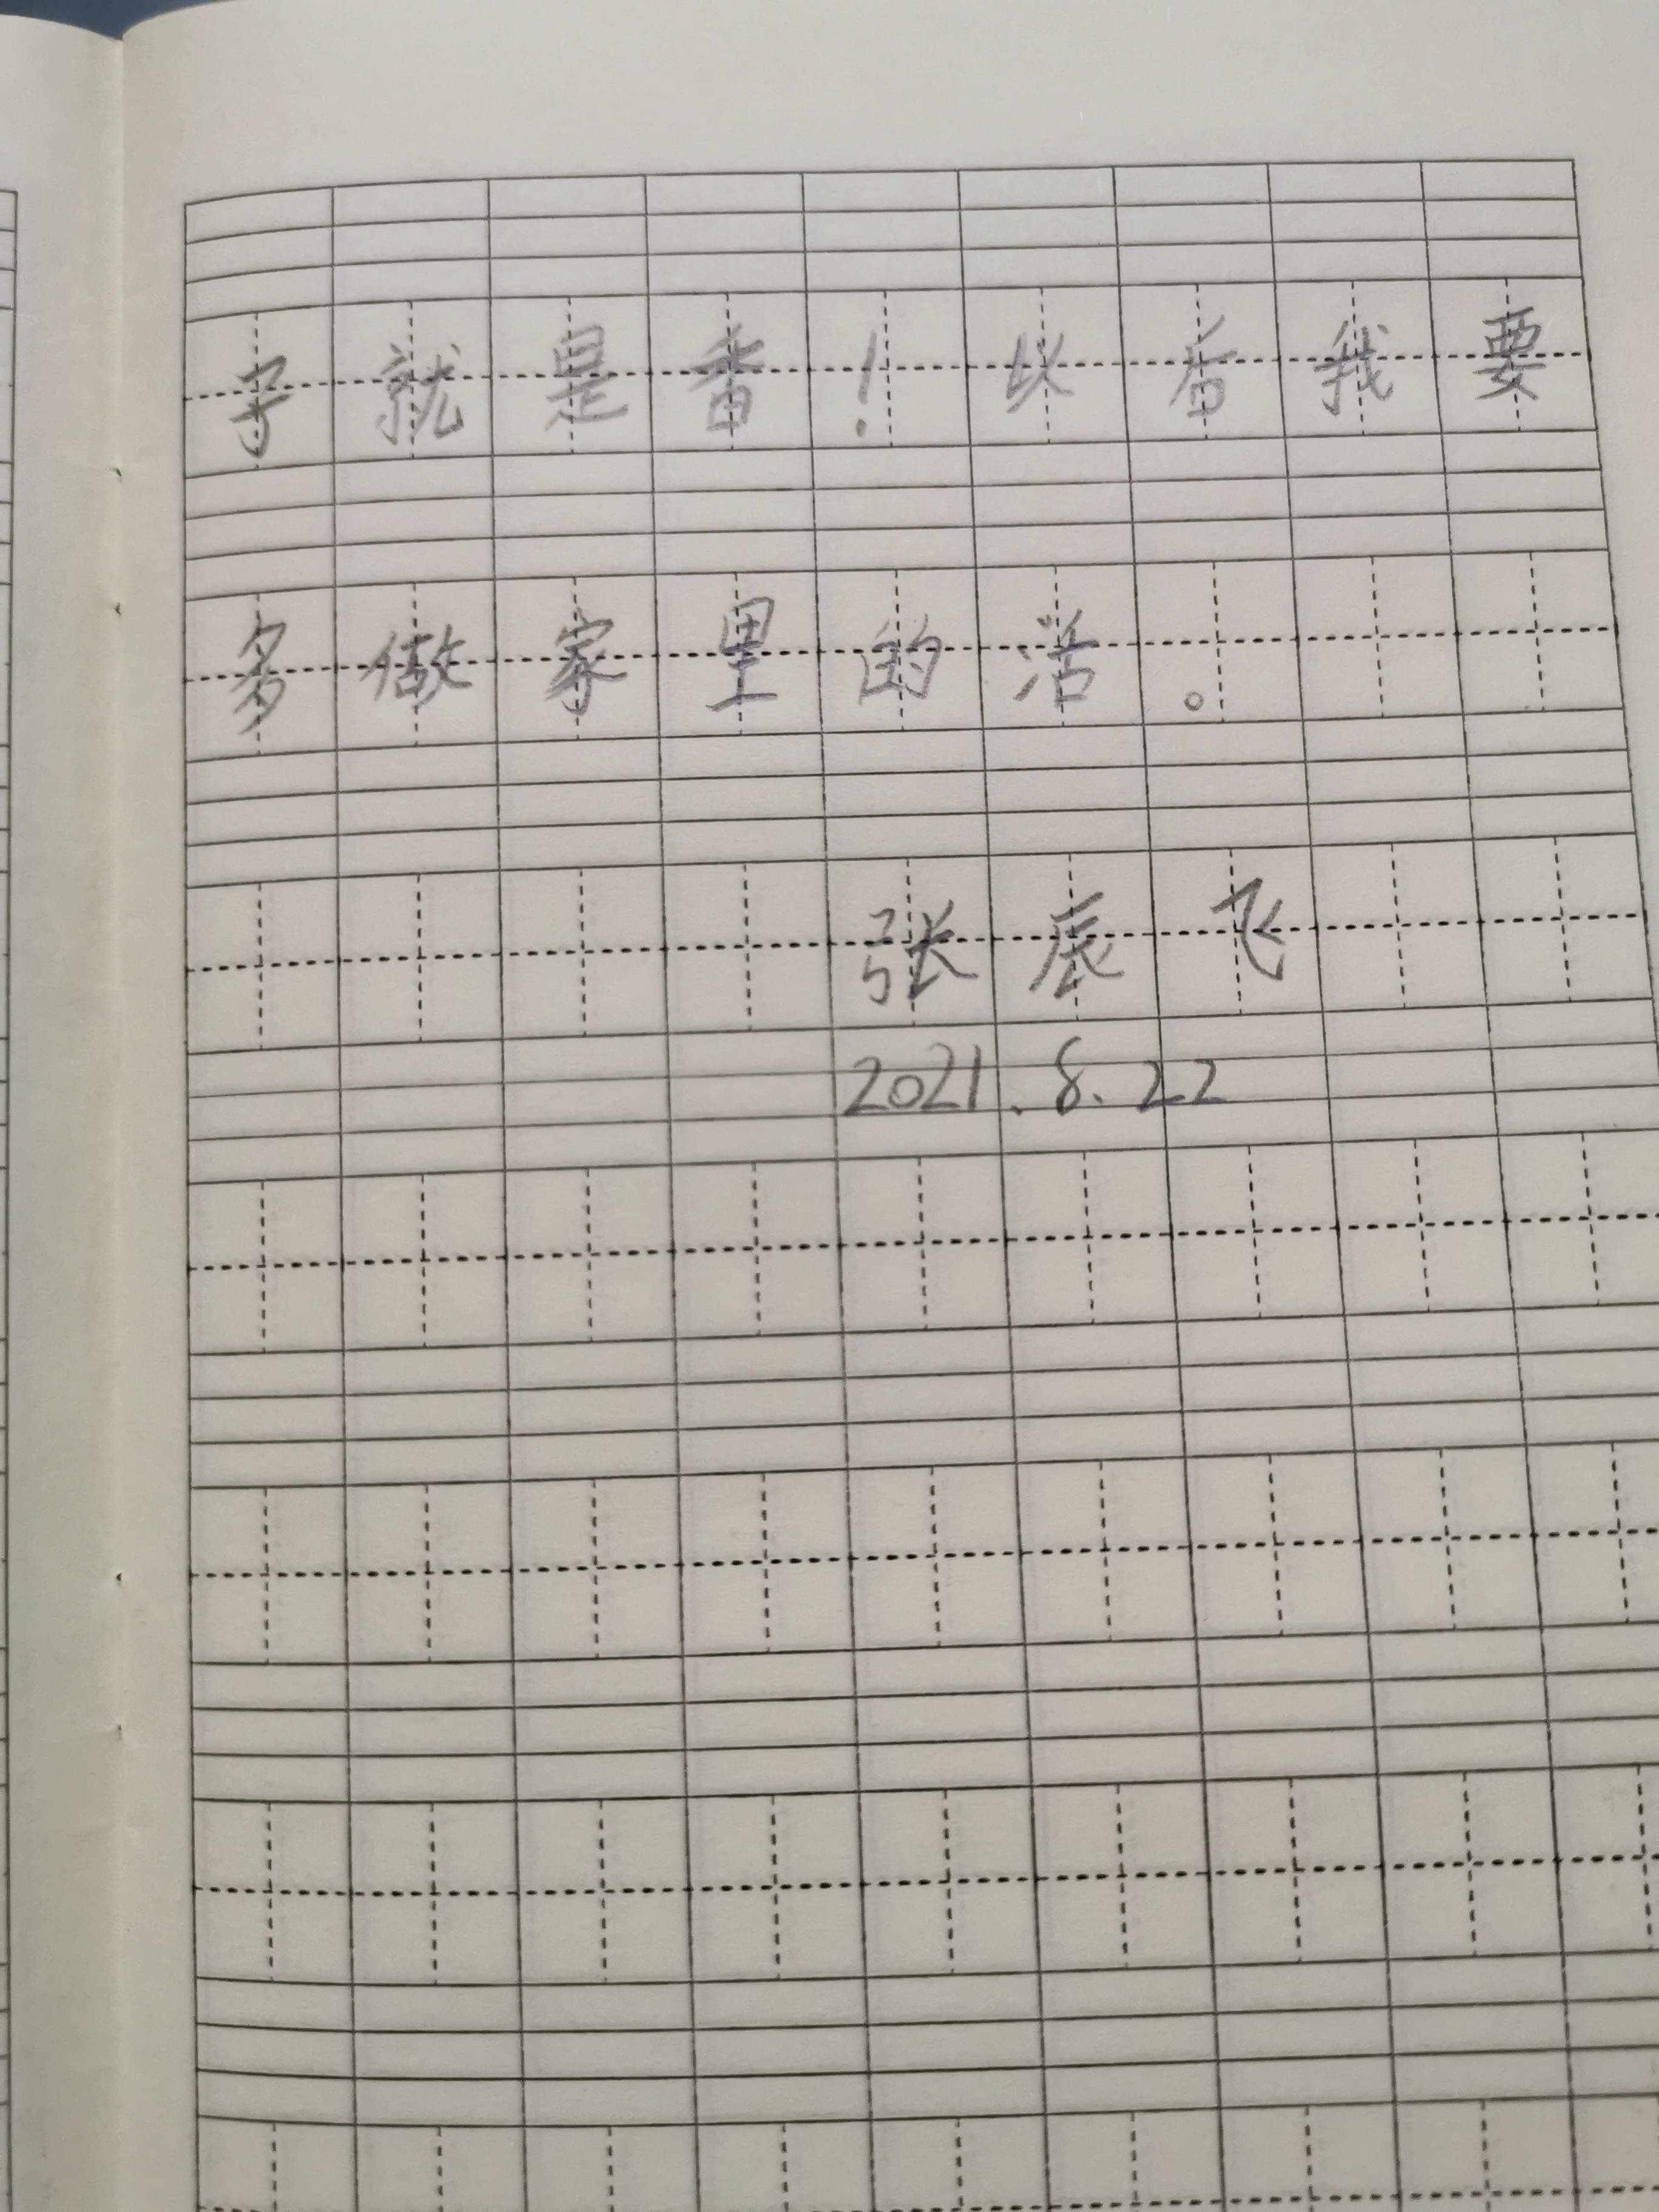 子就是香！以后我要
多做家里的活。
张辰飞
2021.8.22